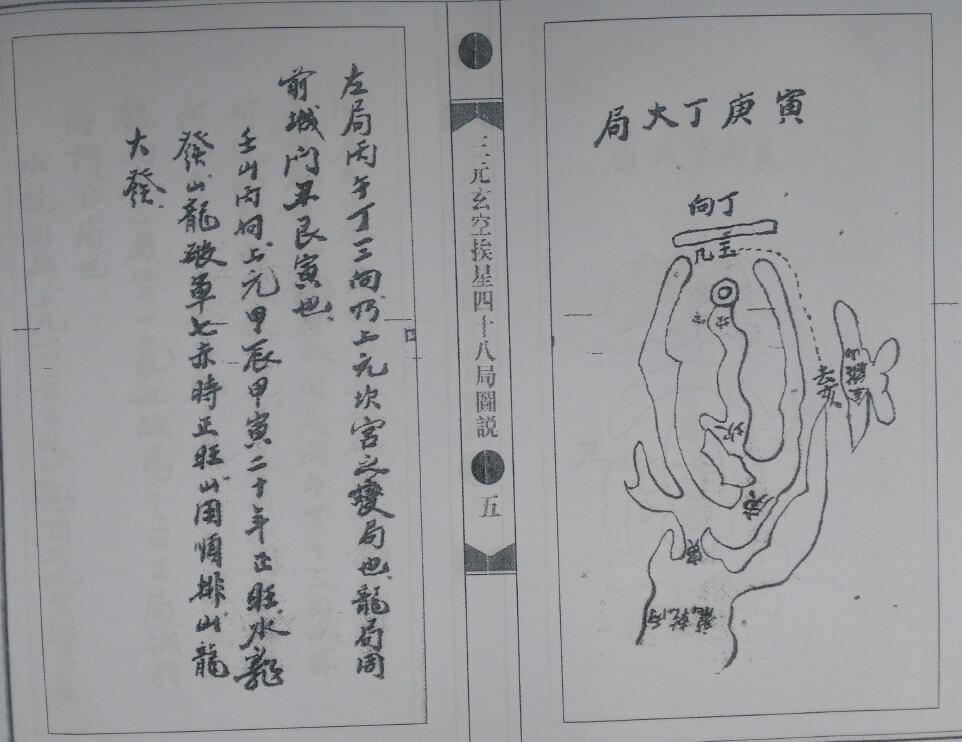 寅庚丁大局
丁向
玉几
坎
庚
寅
三元玄空挨星四十八局圖説
五
左局丙午丁三向乃上元坎宮之變局也龍局同
前城門艮寅也
壬山丙向上元甲辰甲寅二十年正旺水龍
發山龍破軍七赤時正旺山用順排山龍
大發